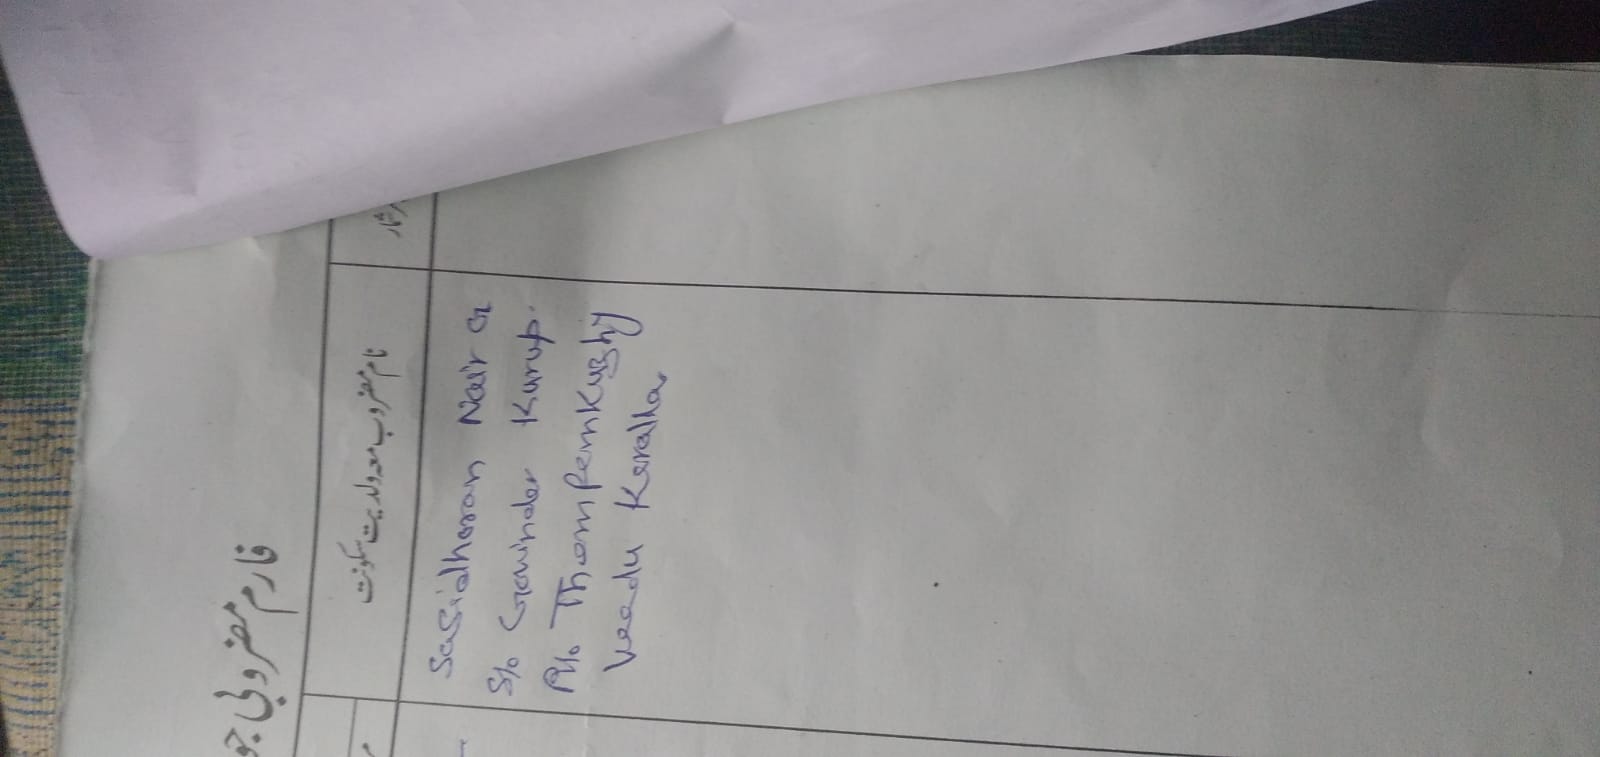 فارم مضروبی
نام مضروب معہ ولدیت سکونت
Sasidharan Nair G
S/o Govinder Kurup.
R/o Thampemkuzhy
Veedu Keralla